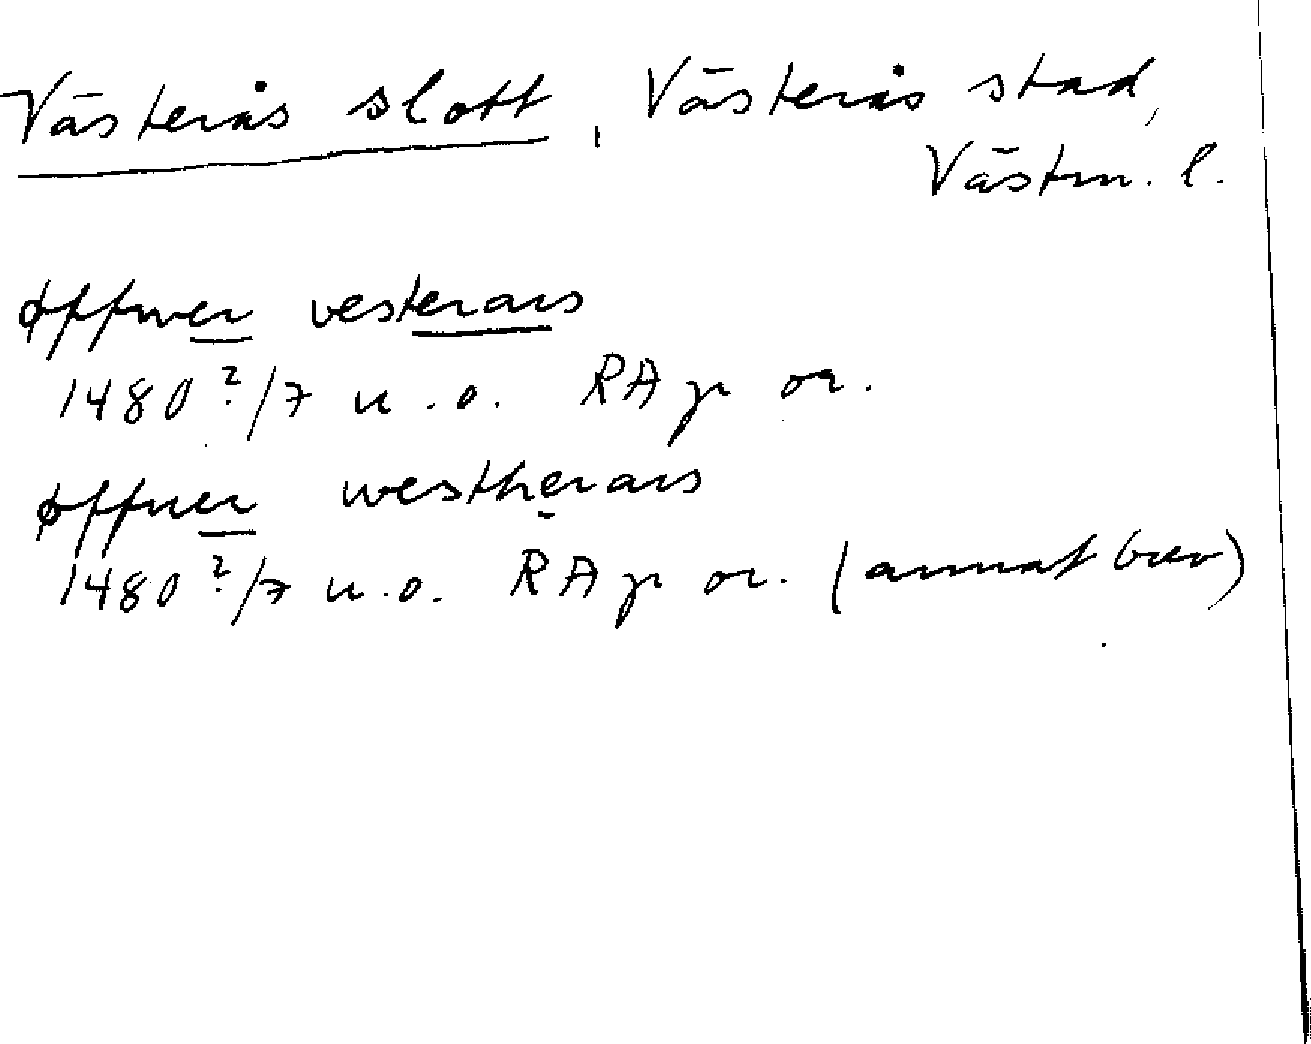 Västerås slott, Västerås stad,
Västm. l.
øffwer vesterars
1480 ?/7 u.o. RA p or.
øffuer westherars
1480 ?/7 u.o. RA p or. (annat brev)